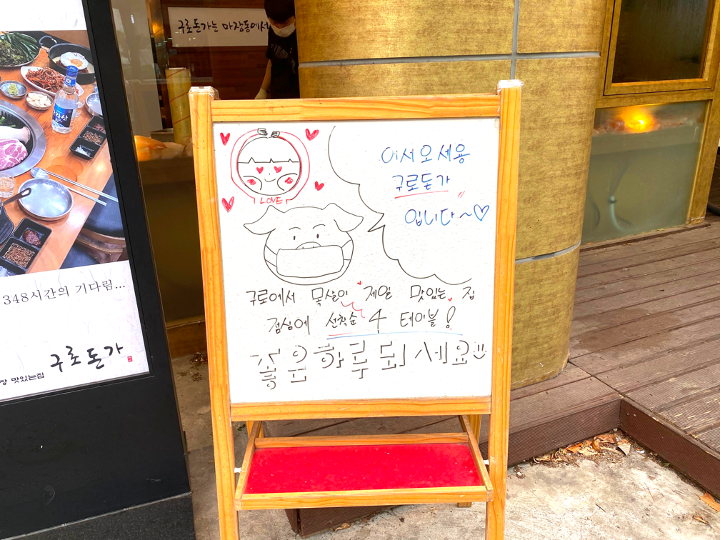 구로돈가는 마장동에서
LOVE
어서오세용
구로돈가
입니다~♡
구로에서 목살이 제일 맛있는 집
점심에 선착순 4 테이블!
좋은하루되세요
348시간의 기다림...
구로돈가
맛있는집